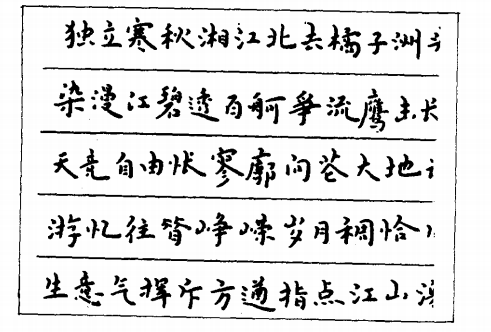 独立寒秋湘江北去橘子洲
染漫江碧透百舸爭流鹰击长
天竞自由怅寥廓问苍大地
游忆往昔峥嵘岁月稠恰
生意气挥斥方遒指点江山